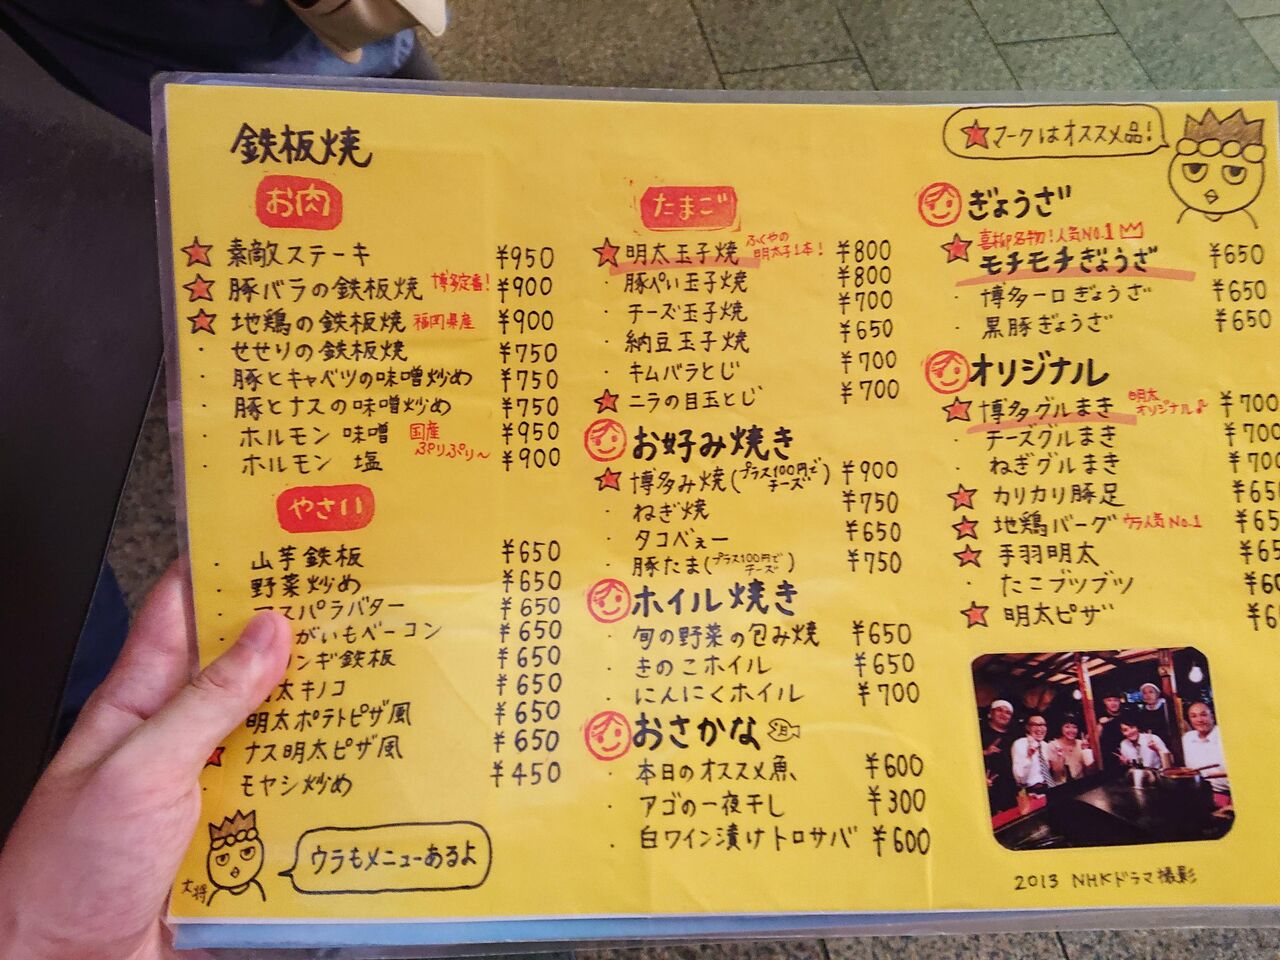 鉄板焼
お肉
素敵ステーキ ¥950
豚バラの鉄板焼 博多定番! ¥900
地鶏の鉄板焼 福岡県産 ¥900
・せせりの鉄板焼 ¥750
・豚とキャベツの味噌炒め ¥750
・豚とナスの味噌炒め ¥750
・ホルモン 味噌 国産 ぷりぷり〜 ¥950
・ホルモン 塩 ¥900
やさい
・山芋鉄板 ¥650
・野菜炒め ¥650
・アスパラバター ¥650
がいもベーコン ¥650
ンギ鉄板 ¥650
太キノコ ¥650
明太ポテトピザ風 ¥650
ナス明太ピザ風 ¥650
・モヤシ炒め ¥450
大将
ウラもメニューあるよ
たまご
明太玉子焼 ふくやの明太子1本! ¥800
・豚ぺい玉子焼 ¥800
・チーズ玉子焼 ¥700
・納豆玉子焼 ¥650
・キムバラとじ ¥700
ニラの目玉とじ ¥700
お好み焼き
博多み焼(プラス100円でチーズ) ¥900
・ねぎ焼 ¥750
・タコべぇー ¥650
・豚たま(プラス100円でチーズ) ¥750
ホイル焼き
・旬の野菜の包み焼 ¥650
・きのこホイル ¥650
・にんにくホイル ¥700
おさかな
・本日のオススメ魚、 ¥600
・アゴの一夜干し ¥300
・白ワイン漬けトロサバ ¥600
★マークはオススメ品!
ぎょうざ
喜柳名物!人気NO.1
モチモチぎょうざ ¥650
・博多一口ぎょうざ ¥650
・黒豚ぎょうざ ¥650
オリジナル
博多グルまき 明太オリジナル♪ ¥700
・チーズグルまき ¥700
・ねぎグルまき ¥700
カリカリ豚足 ¥650
地鶏バーグ ウラ人気No.1
手羽明太
・たこブツブツ
明太ピザ
2013 NHKドラマ撮影